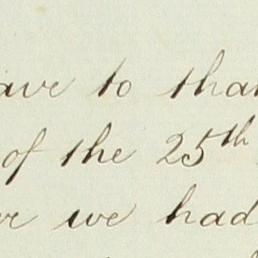 ave to than
of the 25th
we had